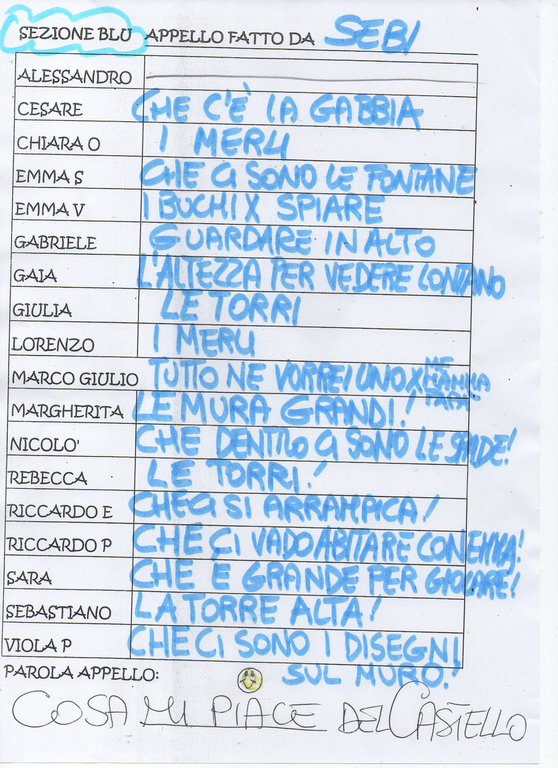 SEZIONE BLU APPELLO FATTO DA SEBI
ALESSANDRO
CESARE CHE C'È LA GABBIA
CHIARA O I MERLI
EMMA S CHE CI SONO LE FONTANE
EMMA V I BUCHI X SPIARE
GABRIELE GUARDARE IN ALTO
GAIA L'ALTEZZA PER VEDERE LONTANO
GIULIA LE TORRI
LORENZO I MERLI
MARCO GIULIO TUTTO NE VORREI UNO X ME MAMMA PAPA'!
MARGHERITA LE MURA GRANDI!
NICOLO' CHE DENTRO CI SONO LE SPADE!
REBECCA LE TORRI!
RICCARDO E CHE CI SI ARRAMPICA!
RICCARDO P CHE CI VADO ABITARE CON EMMA!
SARA CHE È GRANDE PER GIOCARE!
SEBASTIANO LA TORRE ALTA!
VIOLA P CHE CI SONO I DISEGNI
SUL MURO!
PAROLA APPELLO:
COSA MI PIACE DEL CASTELLO